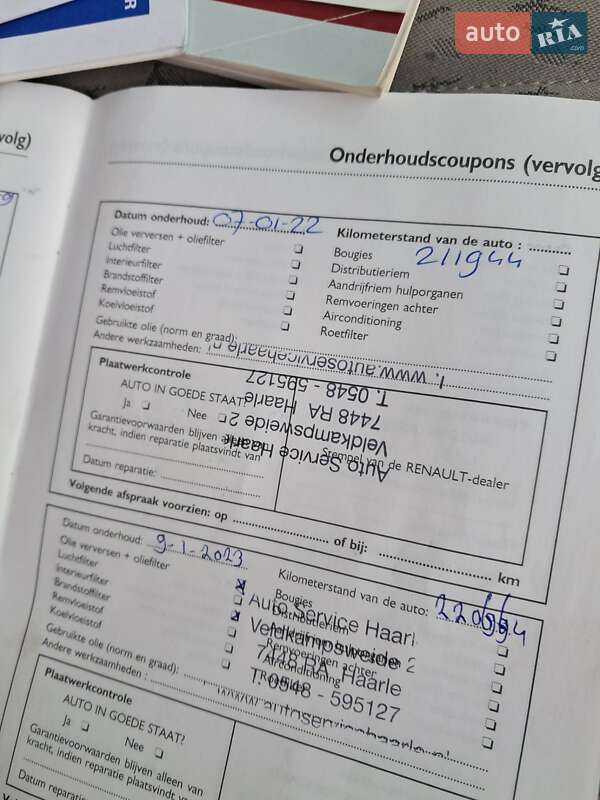 R
auto RIA.com
volg)
Onderhoudscoupons (vervolg
Datum onderhoud: 07-01-22
Kilometerstand van de auto :
211944
Olie verversen + oliefilter
Luchtfilter
Interieurfilter
Brandstoffilter
Remvloeistof
Koelvloeistof
Bougies
Distributieriem
Aandrijfriem hulporganen
Remvoeringen achter
Airconditioning
Roetfilter
Gebruikte olie (norm en graad):
Andere werkzaamheden:
I. www.autoservicehaarle.nl
T. 0548 - 595127
7448 RA Haarle
Veldkampsweide 2
Auto Service Haarle
Plaatwerkcontrole
AUTO IN GOEDE STAAT?
Ja
Nee
Garantievoorwaarden blijven alleen van
kracht, indien reparatie plaatsvindt van
Datum reparatie:
Stempel van de RENAULT-dealer
Volgende afspraak voorzien: op
of bij:
km
Datum onderhoud: 9-1-2023
Kilometerstand van de auto:
Olie verversen + oliefilter
Luchtfilter
Interieurfilter
Brandstoffilter
Remvloeistof
Koelvloeistof
Bougies
Distributieriem
Remvoeringen achter
Airconditioning
Auto Service Haarl
Veldkampsweide 2
7448 RA Haarle
T. 0548 - 595127
Gebruikte olie (norm en graad):
Andere werkzaamheden :
Plaatwerkcontrole
AUTO IN GOEDE STAAT?
Ja
Nee
Garantievoorwaarden blijven alleen van
kracht, indien reparatie plaatsvindt van
Datum reparatie: